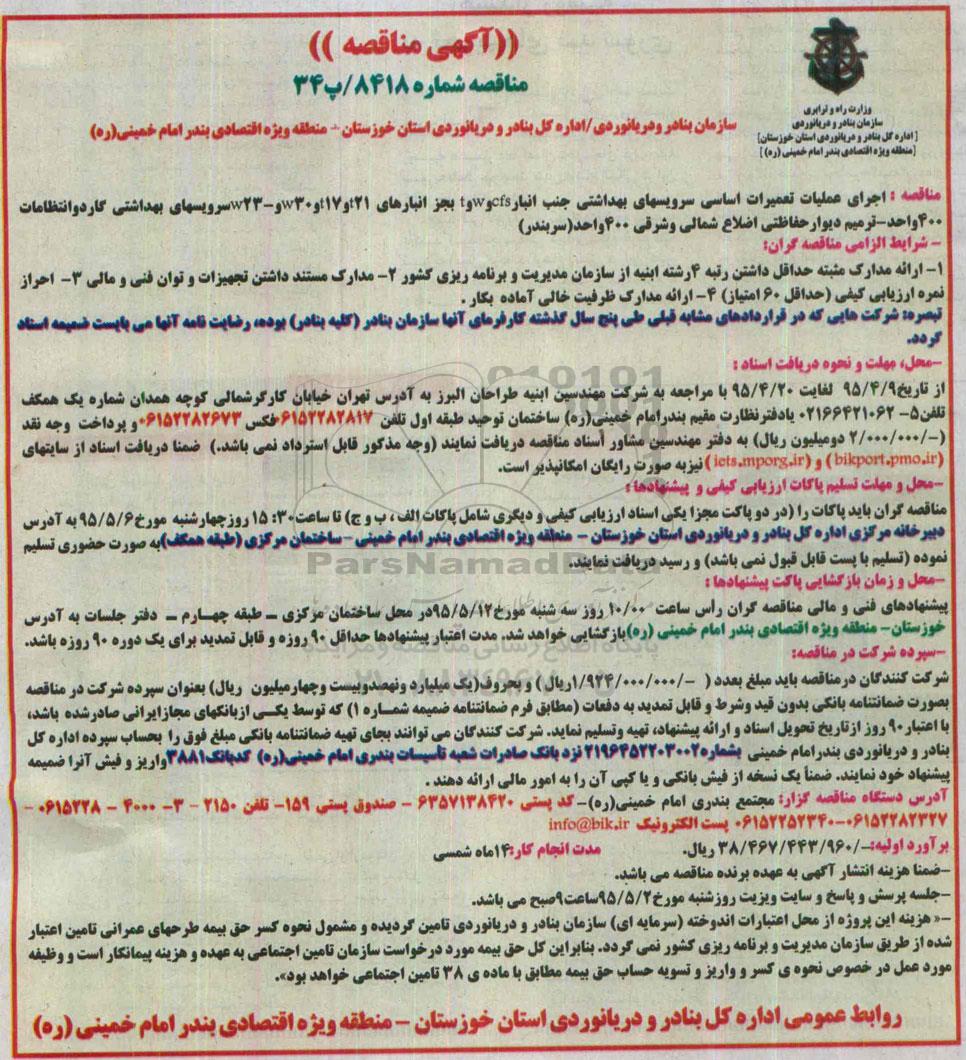 ((آگهی مناقصه ))
مناقصه شماره ۸۴۱۸/پ۳۴
سازمان بنادر ودریانوردی/اداره کل بنادر و دریانوردی استان خوزستان – منطقه ویژه اقتصادی بندر امام خمینی(ره)
وزارت راه و ترابری
سازمان بنادر و دریانوردی
[اداره کل بنادر و دریانوردی استان خوزستان]
[منطقه ویژه اقتصادی بندر امام خمینی (ره) ]
مناقصه : اجرای عملیات تعمیرات اساسی سرویسهای بهداشتی جنب انبارcfsوwوt بجز انبارهای t۲۱وt۱۷وw۳۰و-w۲۳سرویسهای بهداشتی گاردوانتظامات
۴۰۰واحد-ترمیم دیوارحفاظتی اضلاع شمالی وشرقی ۴۰۰واحد(سربندر)
– شرایط الزامی مناقصه گران:
۱- ارائه مدارک مثبته حداقل داشتن رتبه ۴رشته ابنیه از سازمان مدیریت و برنامه ریزی کشور ۲- مدارک مستند داشتن تجهیزات و توان فنی و مالی ۳- احراز
نمره ارزیابی کیفی (حداقل ۶۰ امتیاز) ۴- ارائه مدارک ظرفیت خالی آماده بکار .
تبصره: شرکت هایی که در قراردادهای مشابه قبلی طی پنج سال گذشته کارفرمای آنها سازمان بنادر (کلیه بنادر) بوده، رضایت نامه آنها می بایست ضمیمه اسناد
گردد.
-محل، مهلت و نحوه دریافت اسناد :
از تاریخ۹۵/۴/۹ لغایت ۹۵/۴/۲۰ با مراجعه به شرکت مهندسین ابنیه طراحان البرز به آدرس تهران خیابان کارگرشمالی کوچه همدان شماره یک همکف
تلفن۵- ۰۲۱۶۶۴۲۱۰۶۲ یادفترنظارت مقیم بندرامام خمینی(ره) ساختمان توحید طبقه اول تلفن ۰۶۱۵۲۲۸۲۸۱۷فکس۰۶۱۵۲۲۸۲۶۷۳و پرداخت وجه نقد
(-/۲/۰۰۰/۰۰۰ دومیلیون ریال) به دفتر مهندسین مشاور اسناد مناقصه دریافت نمایند (وجه مذکور قابل استرداد نمی باشد.) ضمنا دریافت اسناد از سایتهای
(bikport.pmo.ir) و (iets.mporg.ir) نیزبه صورت رایگان امکانپذیر است.
-محل و مهلت تسلیم پاکات ارزیابی کیفی و پیشنهادها :
مناقصه گران باید پاکات را (در دو پاکت مجزا یکی اسناد ارزیابی کیفی و دیگری شامل پاکات الف ، ب و ج) تا ساعت۳۰: ۱۵ روزچهارشنبه مورخ۹۵/۵/۶ به آدرس
دبیرخانه مرکزی اداره کل بنادر و دریانوردی استان خوزستان – منطقه ویژه اقتصادی بندر امام خمینی -ساختمان مرکزی (طبقه همکف)به صورت حضوری تسلیم
نموده (تسلیم با پست قابل قبول نمی باشد) و رسید دریافت نمایند.
-محل و زمان بازگشایی پاکت پیشنهادها :
پیشنهادهای فنی و مالی مناقصه گران رأس ساعت ۱۰/۰۰ روز سه شنبه مورخ۹۵/۵/۱۲در محل ساختمان مرکزی – طبقه چهارم – دفتر جلسات به آدرس
خوزستان- منطقه ویژه اقتصادی بندر امام خمینی (ره)بازگشایی خواهد شد. مدت اعتبار پیشنهادها حداقل ۹۰ روزه و قابل تمدید برای یک دوره ۹۰ روزه باشد.
-سپرده شرکت در مناقصه:
شرکت کنندگان درمناقصه باید مبلغ بعدد ( -/۱/۹۲۴/۰۰۰/۰۰۰ریال ) و بحروف(یک میلیارد ونهصدوبیست وچهارمیلیون ریال) بعنوان سپرده شرکت در مناقصه
بصورت ضمانتنامه بانکی بدون قید وشرط و قابل تمدید به دفعات (مطابق فرم ضمانتنامه ضمیمه شماره ۱) که توسط یکی ازبانکهای مجازایرانی صادرشده باشد،
با اعتبار ۹۰ روز ازتاریخ تحویل اسناد و ارائه پیشنهاد، تهیه وتسلیم نماید. شرکت کنندگان می توانند بجای تهیه ضمانتنامه بانکی مبلغ فوق را بحساب سپرده اداره کل
بنادر و دریانوردی بندرامام خمینی بشماره۲۱۹۶۴۵۲۲۰۳۰۰۲ نزد بانک صادرات شعبه تأسیسات بندری امام خمینی(ره) کدبانک۳۸۸۱واریز و فیش آنرا ضمیمه
پیشنهاد خود نمایند. ضمناً یک نسخه از فیش بانکی و یا کپی آن را به امور مالی ارائه دهند .
آدرس دستگاه مناقصه گزار: مجتمع بندری امام خمینی(ره)- کد پستی ۶۳۵۷۱۳۸۴۲۰ – صندوق پستی ۱۵۹- تلفن ۲۱۵۰ – ۳- ۴۰۰۰ – ۰۶۱۵۲۲۸ –
۰۶۱۵۲۲۸۲۳۲۷-۰۶۱۵۲۲۵۲۳۴۰ پست الکترونیک info@bik.ir
برآورد اولیه:-/۳۸/۴۶۷/۴۴۳/۹۶۰ ریال. مدت انجام کار:۱۴ماه شمسی
-ضمنا هزینه انتشار آگهی به عهده برنده مناقصه می باشد.
-جلسه پرسش و پاسخ و سایت ویزیت روزشنبه مورخ۹۵/۵/۲ساعت۹صبح می باشد.
-« هزینه این پروژه از محل اعتبارات اندوخته (سرمایه ای) سازمان بنادر و دریانوردی تامین گردیده و مشمول نحوه کسر حق بیمه طرحهای عمرانی تامین اعتبار
شده از طریق سازمان مدیریت و برنامه ریزی کشور نمی گردد. بنابراین کل حق بیمه مورد درخواست سازمان تامین اجتماعی به عهده و هزینه پیمانکار است و وظیفه
مورد عمل در خصوص نحوه ی کسر و واریز و تسویه حساب حق بیمه مطابق با ماده ی ۳۸ تامین اجتماعی خواهد بود».
روابط عمومی اداره کل بنادر و دریانوردی استان خوزستان – منطقه ویژه اقتصادی بندر امام خمینی (ره)
ParsNamadData
پایگاه اطلاع رسانی مناقصه و مزایده